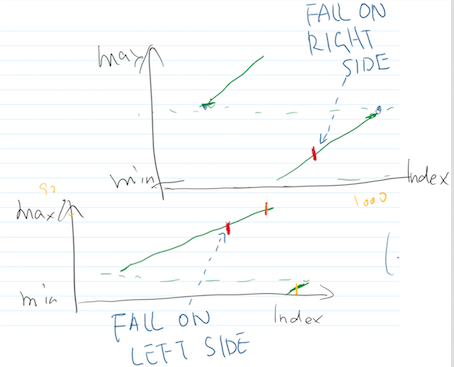 FALL ON
RIGHT
SIDE
max
min
Index
1000
90
max
min
Index
FALL ON
LEFT SIDE